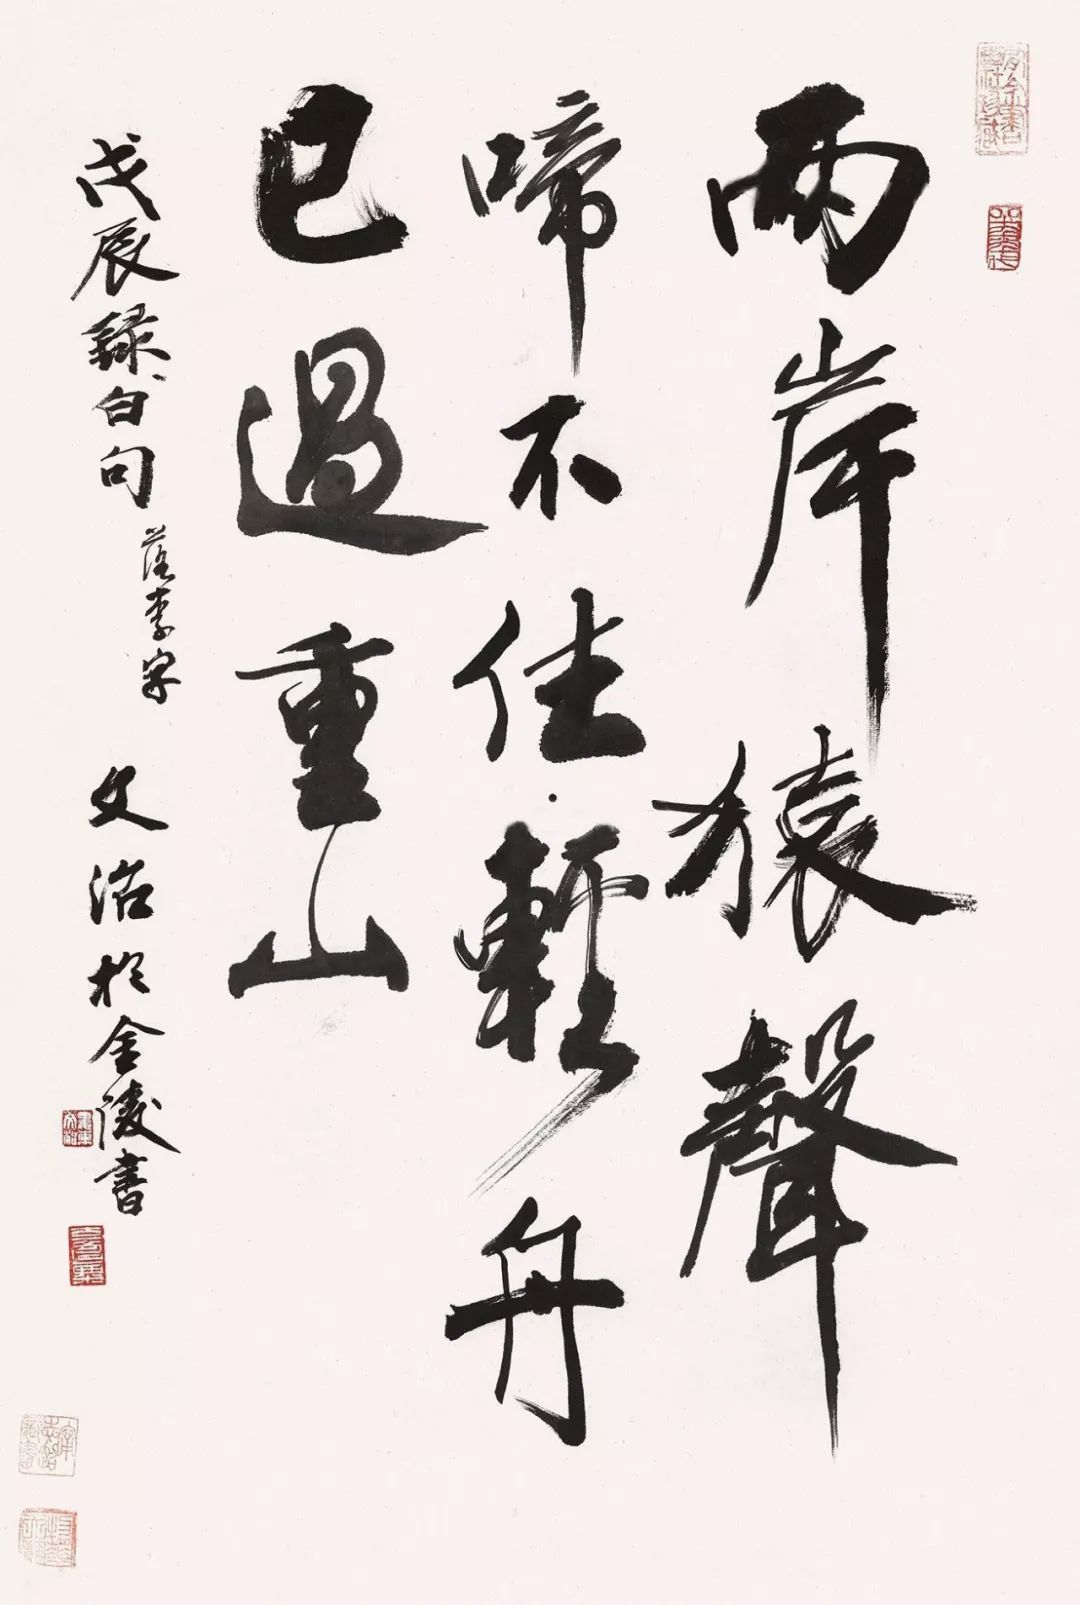 兩岸猿聲
啼不住輕舟
已過重山
戊辰錄白句
落李字
文治於金陵書